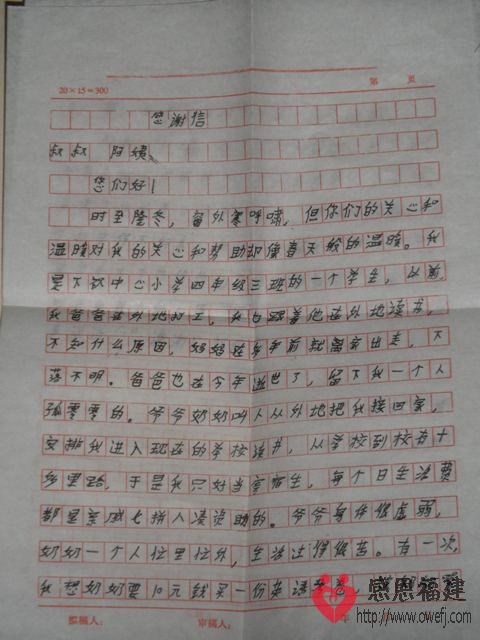 20×15=300 第 页
感谢信
叔叔 阿姨、
您们好!
时至隆冬,窗外寒呼啸,但你们的关心和
温暖对我的关心和帮助却像春天般的温暖。我
是 中心小学四年级三班的一个学生,从前
我爸爸在外地打工,我也跟着他在外地读书,
不知什么原因,妈妈在多年前就离家出走,下
落不明。爸爸也在今年逝世了,留下我一个人
孤零零的。爷爷奶奶叫人从外地把我接回家,
安排我进入现在的学校读书,从学校到校有十
多里路,于是我只好当寄宿生,每个月生活费
都是亲戚七拼八凑资助的。爷爷身体很虚弱,
奶奶一个人忙里忙外,生活过得很苦。有一次,
我想奶奶要10元钱买一份英语
拟稿人: 审稿人: 年
感恩福建
http://www.owefj.com/